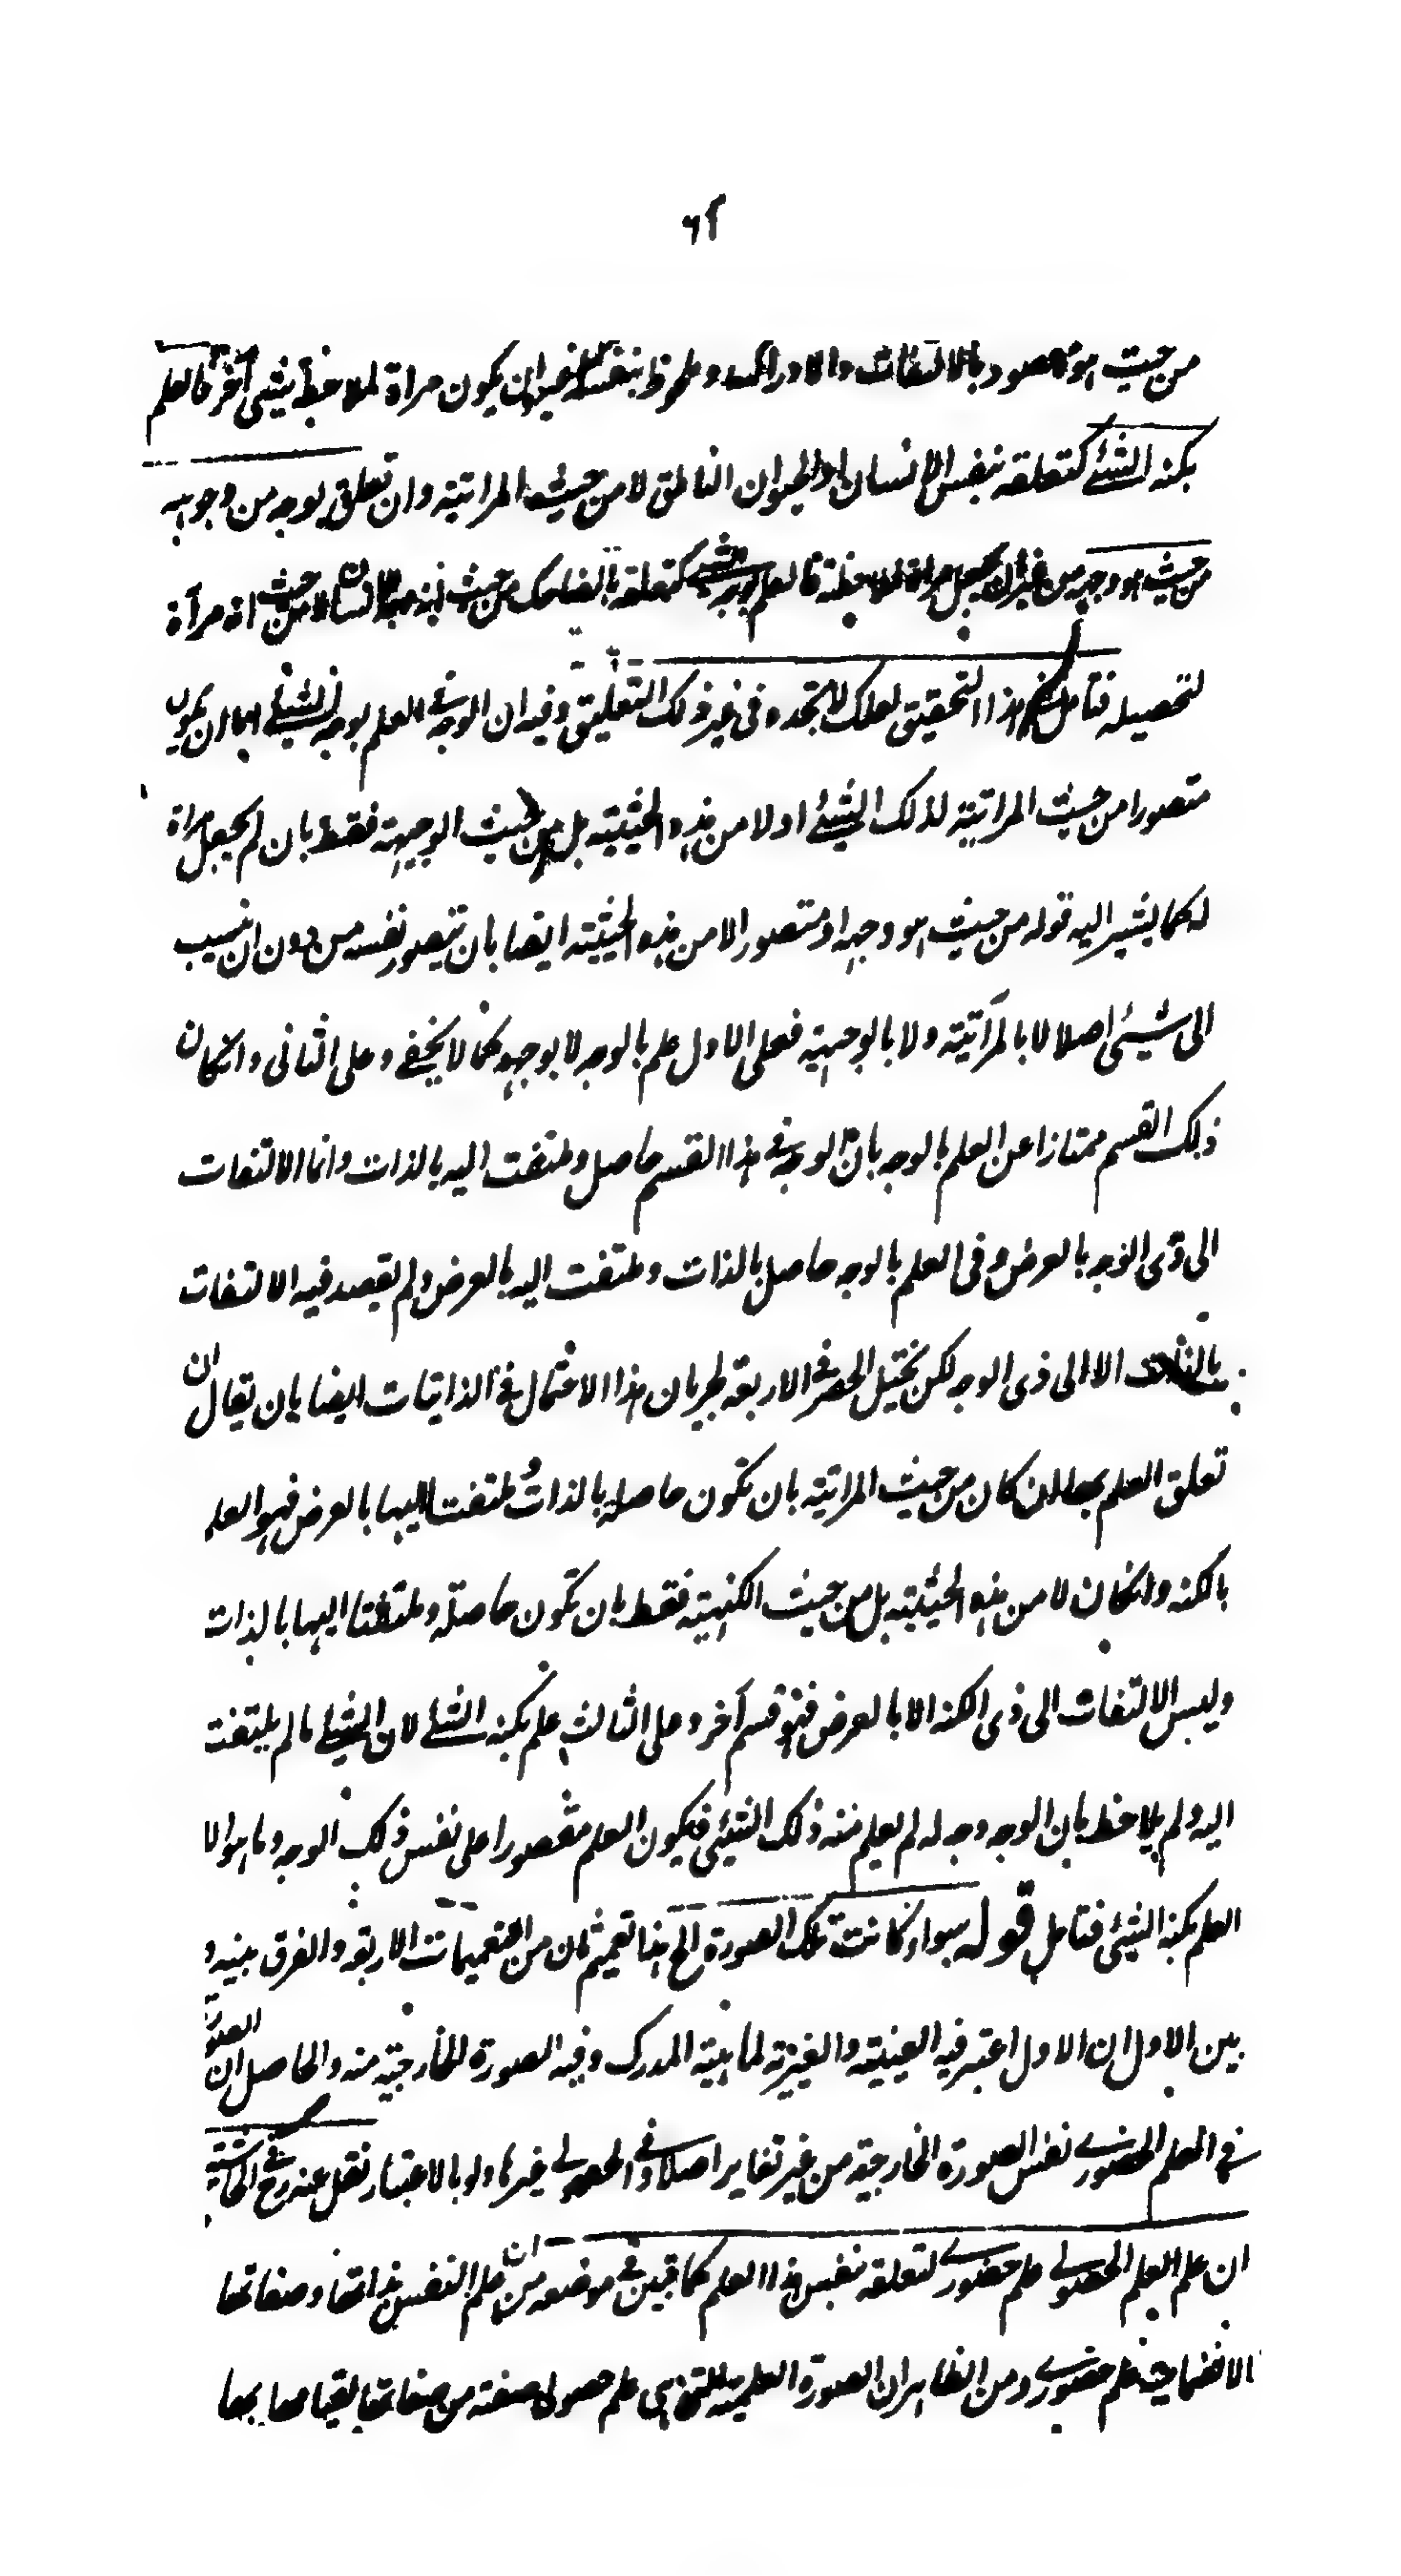 ٦٢
من حيث هو مقصود بالالتفات والادراك وملحوظ بنفسه من غير ان يكون مرآة لملاحظة شيئ آخر فالعلم
بكنه الشئ كتعلقه بنفس الانسان او الحيوان الناطق لا من حيث المراتية وان تعلق بوجه من وجوهه
من حيث هو وجهه من غير ان يجعل مرآة لملاحظته فالعلم بوجه الشئ كتعلقه بالضاحك من حيث انه للانسان لا من حيث انه مرآة
لتحصيله فتامل في هذا التحقيق لعلك لا تجده فى غير ذلك التعليق وفيه ان الوجه فى العلم بوجه الشئ اما ان يكون
متصورا من حيث المراتية لذلك الشيئ او لا من هذه الحيثية بل من حيث الوجهية فقط بان لم يجعل مراة
له كما يشير اليه قوله من حيث هو وجهه او متصور الا من هذه الحيثية ايضا بان يتصور نفسه من دون ان ينسب
الى شيئ اصلا لا بالمرآتية ولا بالوجهية فعلى الاول علم بالوجه لا بوجهه كما لا يخفے وعلى الثانى وانكان
ذلك القسم ممتازا عن العلم بالوجه بان الوجه فى هذا القسم حاصل وملتفت اليه بالذات وانما الالتفات
الى ذى الوجه بالعرض وفى العلم بالوجه حاصل بالذات وملتفت اليه بالعرض ولم يقصد فيه الالتفات
بالذات الا الى ذى الوجه لكن يختل الحصر فى الاربعة لجريان هذا الاحتمال فى الذاتيات ايضا بان يقال ان
تعلق العلم بها ان كان من حيث المراتية بان تكون حاصلة بالذات وملتفت اليها بالعرض فهو العلم
بالكنه وانكان لا من هذه الحيثية بل من حيث الكنهية فقط بان تكون حاصلة وملتفتا اليها بالذات
وليس الالتفات الى ذى الكنه الا بالعرض فهو قسم آخر وعلى الثالث علم بكنه الشئ لان الشيئ ما لم يلتفت
اليه ولم يلاحظ بان الوجه وجه له لم يعلم منه ذلك الشيئ فيكون العلم مقصورا على نفس ذلك الوجه وما هو الا
العلم بكنه الشيئ فتامل قوله سواء كانت تلك الصورة الخ هذا تعميم ثان من التعميمات الاربعة والفرق بينه و
بين الاول ان الاول اعتبر فيه العينية والغيرية لماهية المدرك وفيه الصورة الخارجية منه والحاصل ان الصورة
فى العلم الحضورے نفس الصورة الخارجية من غير تغاير اصلا وفى الحصولى غيرها ولو بالاعتبار نقل عنه رح فى الحاشية
ان علم العلم الحصولى علم حضورے لتعلقه بنفس هذا العلم كما تبين فى موضعه من ان علم النفس بذاتها وصفاتها
الانضمامية علم حضورى ومن الظاهر ان الصورة العلمية التى هى علم حصولى صفة من صفاتها لقيامها بها